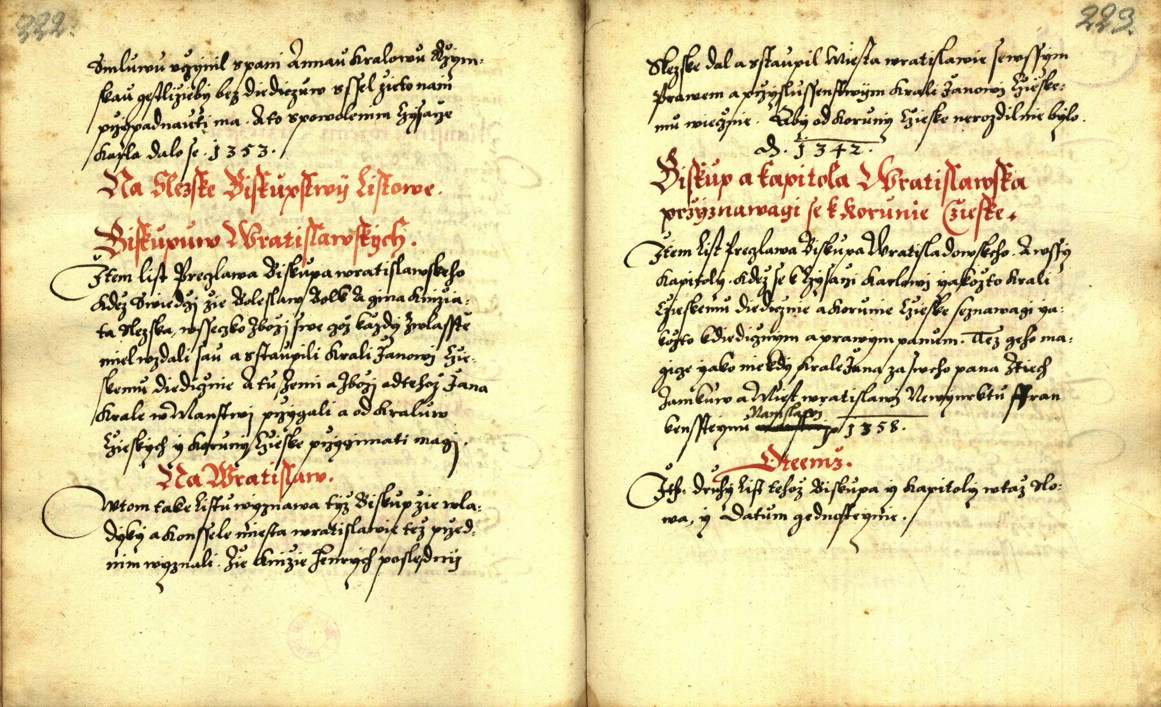 222.
Smluwu vczinil s pani Annau Kralowu Rzym:
skau gestlizieby bez diediczuow sessel zie to nani
przypadnauti ma. A to s powolenim Czysarze
Karla dalo se. 1353.
Na Slezske Biskupstwij Listowe.
Biskupuow Wratislawskych.
Item list Preglawa Biskupa wratislawskeho
kdez Swiedczi zie Boleslaw Bolk a gina knizia:
ta Slezska, wsseczko zbozi swe coz kazdy zwlasste
miel wzdali sau a sstaupili Krali Janowi Cze:
skemu diedicznie A tu zemi a zbozi od tehoz Jana
Krale w Manstwi przygali a od Kraluow
Czieskych y Koruny Czieske przygimati magi.
Na Wratislaw.
W tom take Listu wyznawa tyz Biskup zie wla:
dyky a Konssele miesta wratislawie tez przed
nim wyznali. Zie knizie Henrych poslednij
223.
Slezske dal a sstaupil Miesta wratislawie se wssym
prawem a przyslussenstwym Krali Janowi Czieske:
mu wiecznie. Aby od Koruny Czieske nerozdilnie bylo.
d. 1342.
Biskup a kapitola Wratislawska
przyznawagi se k Korunie Czieske.
Item List Preglawa Biskupa Wratisladowskeho. A wssy
kapitoly. kdez se k Czysarzi Karlowi yakozto Krali
Czieskemu diediczne a Korunie Czieske seznawagi ya:
kozto k diedicznym a prawym panum. Tez geho ma:
gize yako niekdy Krale Jana za sweho pana z tiech
Zamkuow a Miest wratislawi Newmarktu ffran
kensstegnu Namslawi 1358.
O temz.
Ité. druhy list tehoz Biskupa y Kapitoly w taz Slo:
wa, y Datum gednosteynie.